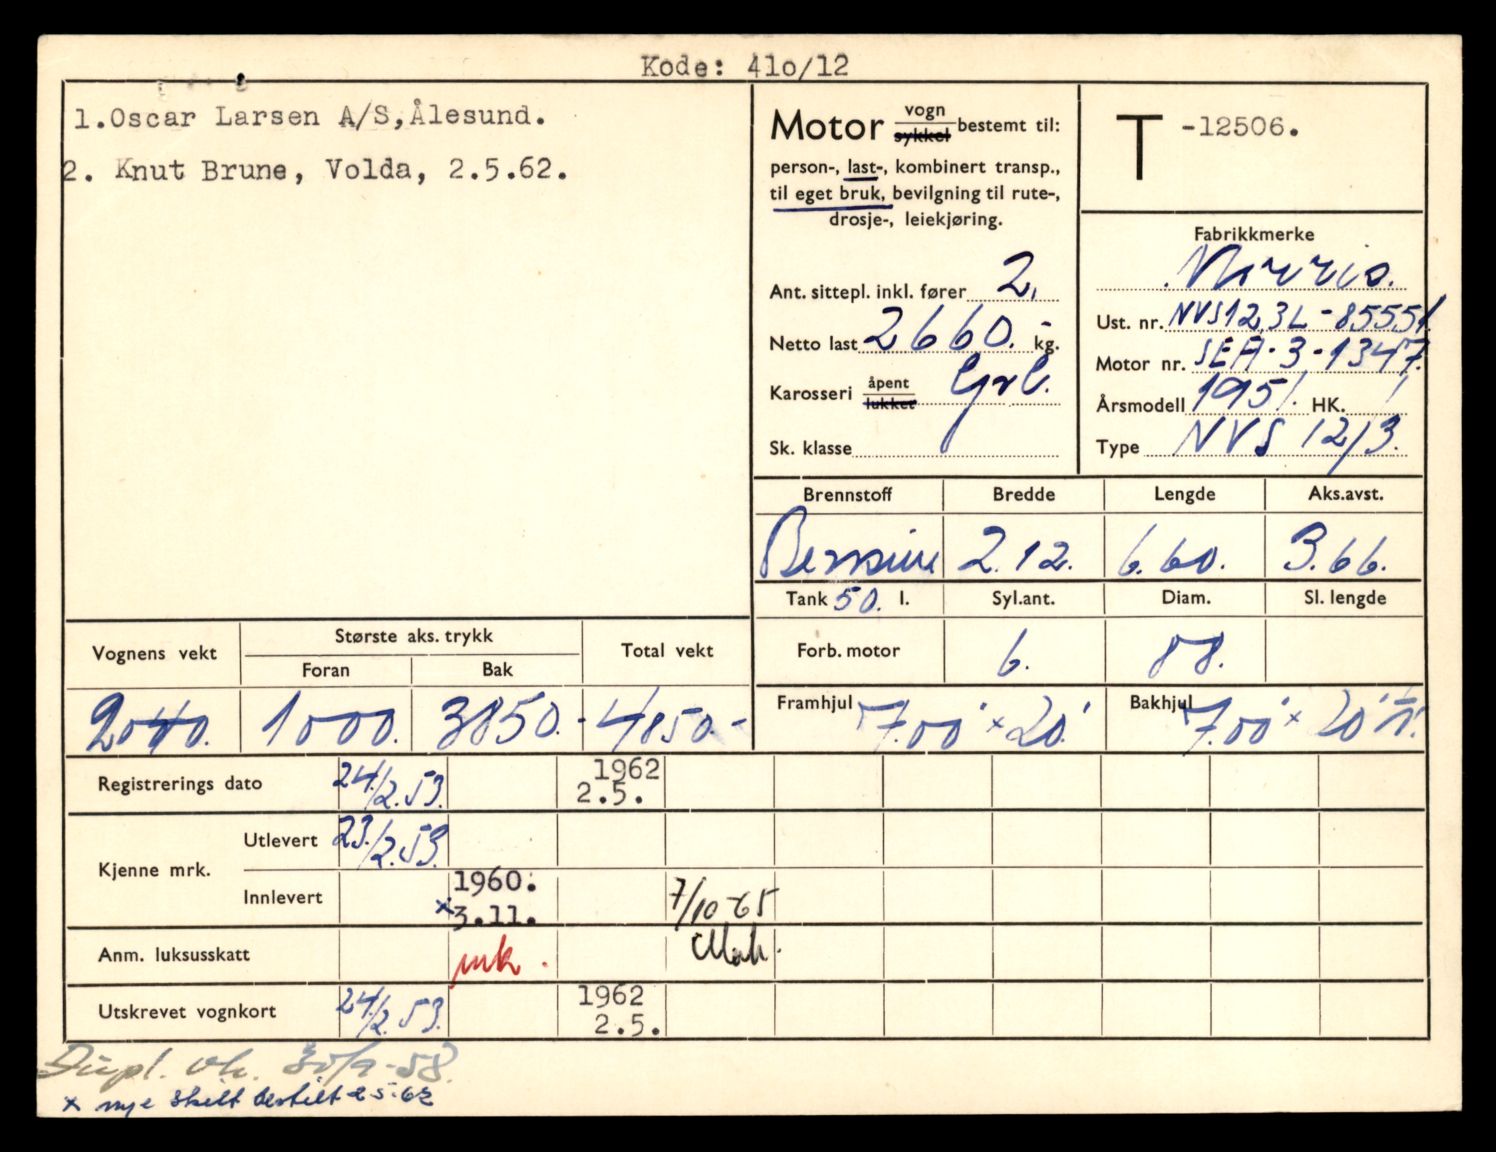 Kode: 41o/12
1.Oscar Larsen A/S,Ålesund.
2. Knut Brune, Volda, 2.5.62.
Motor vogn sykkel bestemt til:
person-, last-, kombinert transp.,
til eget bruk, bevilgning til rute-,
drosje-, leiekjøring.
Ant. sittepl. inkl. fører 2.
Netto last 2660.- kg.
Karosseri åpent lukket
Sk. klasse
T -12506.
Fabrikkmerke
Morris.
Ust. nr. NVS12,3L-85551.
Motor nr. SEA-3-1347.
Årsmodell 1951. HK.
Type NVS 12/3.
Brennstoff Bredde Lengde Aks.avst.
Bensin 2.12. 6.60. 3.66.
Tank 50. l. Syl.ant. Diam. Sl. lengde
Forb. motor 6. 88.
Framhjul 7.00'×20' Bakhjul 7.00'×20'
Vognens vekt Største aks. trykk Total vekt
Foran Bak
2040. 1000. 3850.- 4850.-
Registrerings dato 24/2.53. 1962 2.5.
Kjenne mrk. Utlevert 23./2.53.
Innlevert 1960. ×3.11. 7/10-65
Anm. luksusskatt mk.
Utskrevet vognkort 24/2.53. 1962 2.5.
Dupl. vk. 30/9-58.
× nye skilt bestilt 2 5-62